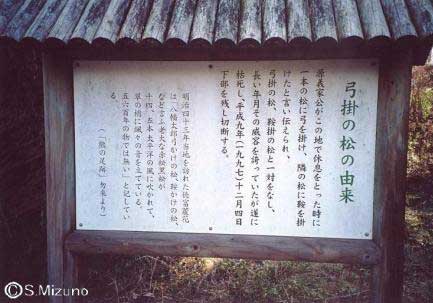 弓掛の松の由来
源義家公がこの地で休息をとった時に
一本の松に弓を掛け、隣の松に鞍を掛
けたと言い伝えられ、
弓掛の松、鞍掛の松と一対をなし、
長い年月その威容を誇っていたが遂に
枯死し、平成九年（一九九七）十二月四日
下部を残し切断する。
明治四十三年当地を訪れた徳富蘆花
は「八幡太郎弓かけの松、鞍かけの松、
など言ふ老大な赤松黒松が
十四、五本太平洋の風に吹かれて、
翠の梢に颯々の音を立てている。
五六百年の物では無い」と記してい
る。
（「熊の足跡」勿来より）
©S.Mizuno